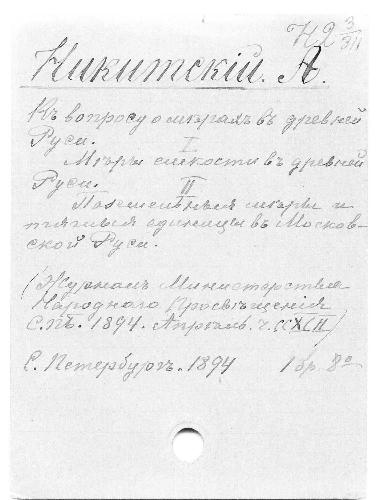 Н2 3/311
Никитскій. А.
Къ вопросу о мѣрахъ въ древней
Руси. I.
Мѣры емкости въ древней
Руси. II
Поземельныя мѣры и
тяглыя единицы въ Москов-
ской Руси.
(Журналъ Министерства
Народнаго Просвѣщенія
С.Пб. 1894. Апрѣль. ч. CCXCII)
С. Петербургъ. 1894 1 бр. 8º